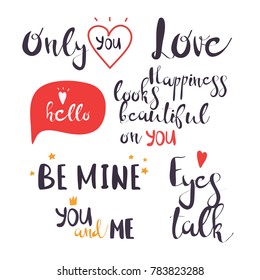 Only you
Love
hello
Happiness
looks
beautiful
on YOU
BE MINE
YOU
and ME
Eyes
talk
shutterstock.com · 783823288